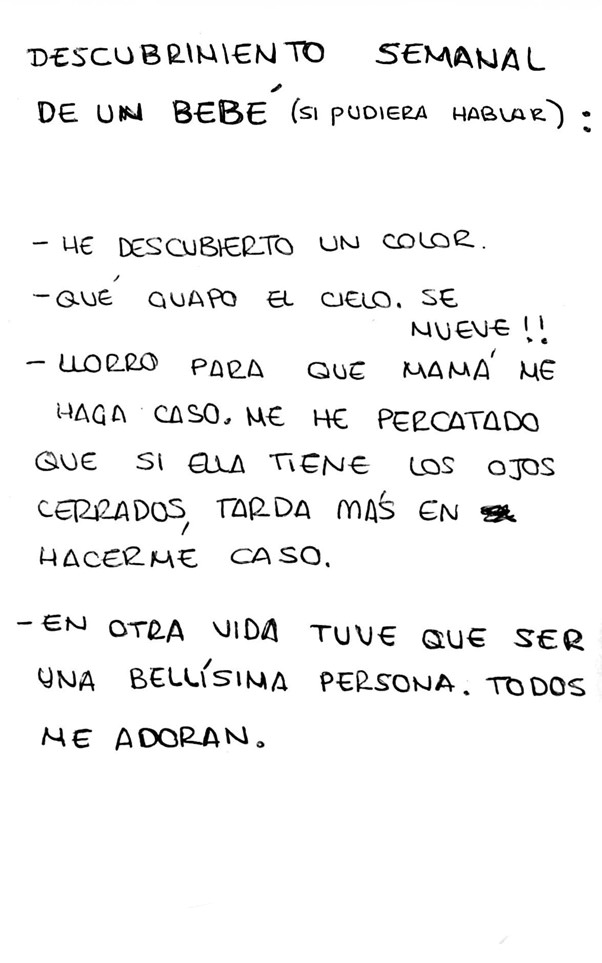 DESCUBRIMIENTO SEMANAL
DE UN BEBÉ (SI PUDIERA HABLAR):
- HE DESCUBIERTO UN COLOR.
- QUÉ GUAPO EL CIELO. SE
MUEVE!!
- LLORRO PARA QUE MAMÁ ME
HAGA CASO. ME HE PERCATADO
QUE SI ELLA TIENE LOS OJOS
CERRADOS, TARDA MÁS EN
HACERME CASO.
- EN OTRA VIDA TUVE QUE SER
UNA BELLÍSIMA PERSONA. TODOS
ME ADORAN.